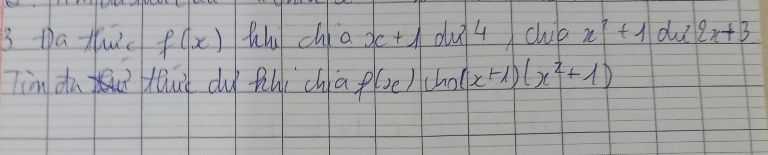 3 Đa thức f(x) khi chia x+1 dư 4, chia x² + 1 dư 2x+3
Tìm đa thức dư khi chia f(x) cho (x+1)(x²+1)